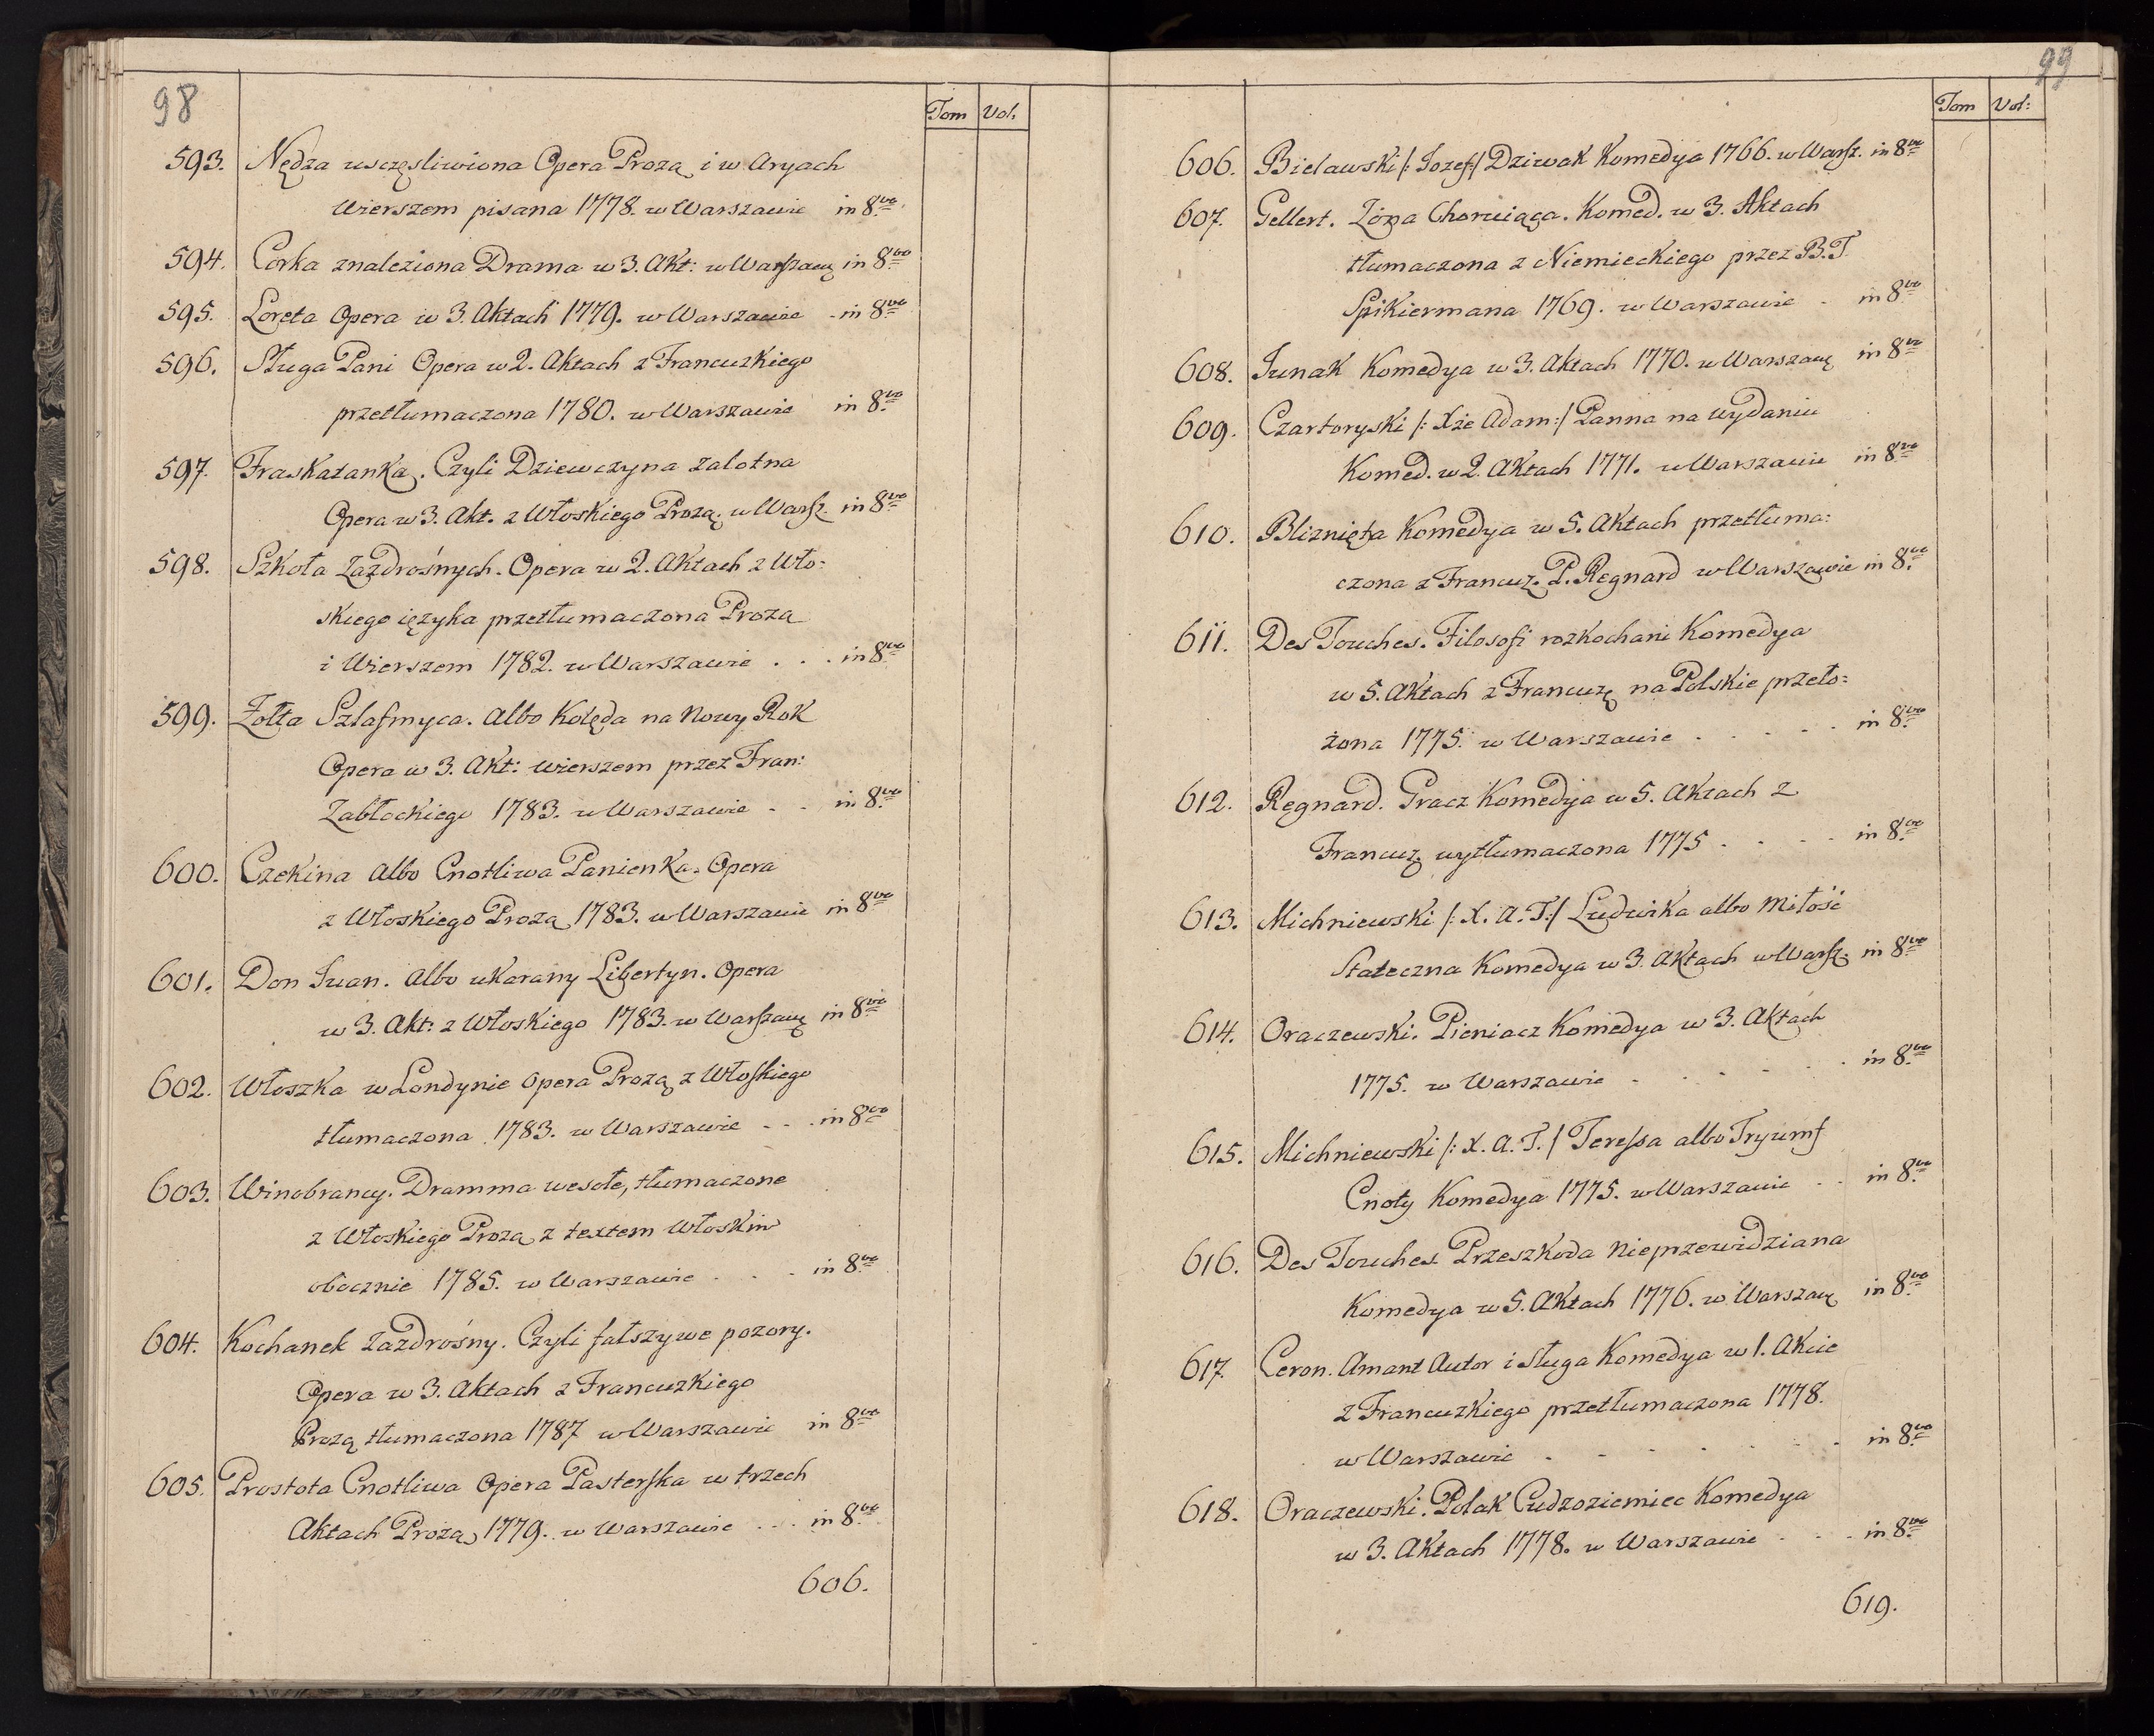 98
Tom Vol.
593. Nędza uszczęsliwiona Opera Prozą i w Aryach
Wierszem pisana 1778. w Warszawie in 8vo
594. Corka znaleziona Drama w 3. Akt: w Warszawę in 8vo
595. Loreta Opera w 3. Aktach 1779. w Warszawie - in 8vo
596. Sługa Pani Opera w 2. Aktach z Francuzkiego
przetłumaczona 1780. w Warszawie in 8vo
597. Fraskatanka. Czyli Dziewczyna zalotna
Opera w 3. Akt. z Włoskiego Prozą. w Warsz. in 8vo
598. Szkoła Zazdrośnych. Opera w 2. Aktach z Wło:
skiego ięzyka przetłumaczona Prozą
i Wierszem 1782. w Warszawie . . . in 8vo
599. Żołta Szlafmyca. Albo Kolęda na Nowy Rok
Opera w 3. Akt: wierszem przez Fran:
Zabłockiego 1783. w Warszawie - - in 8vo
600. Czekina albo Cnotliwa Panienka. Opera
z Włoskiego Prozą 1783. w Warszawie in 8vo
601. Don Juan. Albo ukarany Libertyn. Opera
w 3. Akt: z Włoskiego 1783. w Warszawę in 8vo
602. Włoszka w Londynie Opera Prozą z Włoskiego
tłumaczona 1783. w Warszawie - - . in 8vo
603. Winobrancy. Dramma wesołe, tłumaczone
z Włoskiego Prozą z textem Włoskim
obocznie 1785. w Warszawie . . . in 8vo
604. Kochanek Zazdrośny. Czyli fałszywe pozory.
Opera w 3. Aktach z Francuzkiego
Prozą tłumaczona 1787 w Warszawie in 8vo
605. Prostota Cnotliwa Opera Pasterska w trzech
Aktach Prozą 1779. w Warszawie . . . in 8vo
606.
99
Tom Vol:
606. Bielawski /: Jozef:/ Dziwak Komedya 1766. w Warsz. in 8vo
607. Gellert. Żona Choruiąca. Komed. w 3. Aktach
tłumaczona z Niemieckiego przez B.T.
Spikiermana 1769. w Warszawie - in 8vo
608. Junak Komedya w 3. Aktach 1770. w Warszawę in 8vo
609. Czartoryski /: Xże Adam:/ Panna na wydaniu
Komed. w 2. Aktach 1771. w Warszawie in 8vo
610. Bliznięta Komedya w 5. Aktach przetłuma:
czona z Francuz. P. Regnard w Warszawie in 8vo
611. Des Touches. Filosofi rozkochani Komedya
w 5. Aktach z Francuzę na Polskie przeło:
żona 1775. w Warszawie . . . . . in 8vo
612. Regnard. Gracz Komedya w 5. Aktach z
Francuz. wytłumaczona 1775 . . . . in 8vo
613. Michniewski /: X. A. T:/ Ludwika albo Miłość
Stateczna Komedya w 3. Aktach w Warsz. in 8vo
614. Oraczewski. Pieniacz Komedya w 3. Aktach
1775. w Warszawie - . - - . . in 8vo
615. Michniewski /: X. A. T. / Teressa albo Tryumf
Cnoty Komedya 1775. w Warszawie . . in 8vo
616. Des Touches. Przeszkoda nieprzewidziana
Komedya w 5. Aktach 1776. w Warszawę in 8vo
617. Ceron. Amant Autor i sługa Komedya w 1. Akcie
z Francuzkiego przetłumaczona 1778.
w Warszawie . - - - - - . in 8vo
618. Oraczewski. Polak Cudzoziemiec Komedya
w 3. Aktach 1778. w Warszawie . . - in 8vo
619.